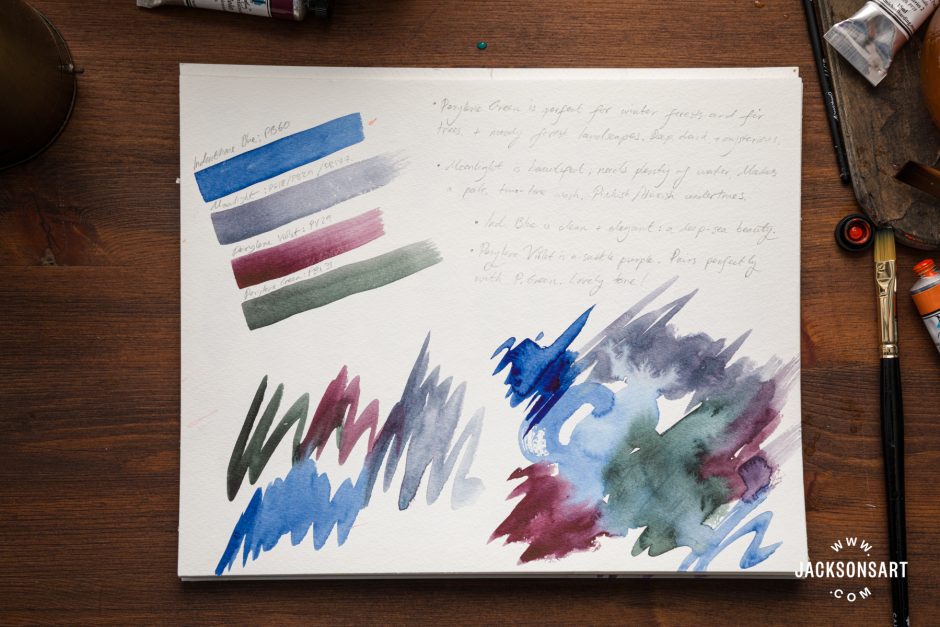 Indanthrone Blue: PB60
Moonlight:
Perylene Violet: PV29
Perylene Green: PBk31
• Perylene Green is perfect for winter forests and for
trees + moody forest landscapes. Deep dark + mysterious.
• Moonlight is beautiful, needs plenty of water. Makes
a pale, two-tone wash. Pinkish/bluish undertones.
• Ind. Blue is clean + elegant: a deep-sea beauty.
• Perylene Violet is a subtle purple. Pairs perfectly
with P. Green. Lovely tone!
WWW.
JACKSONSART
.COM